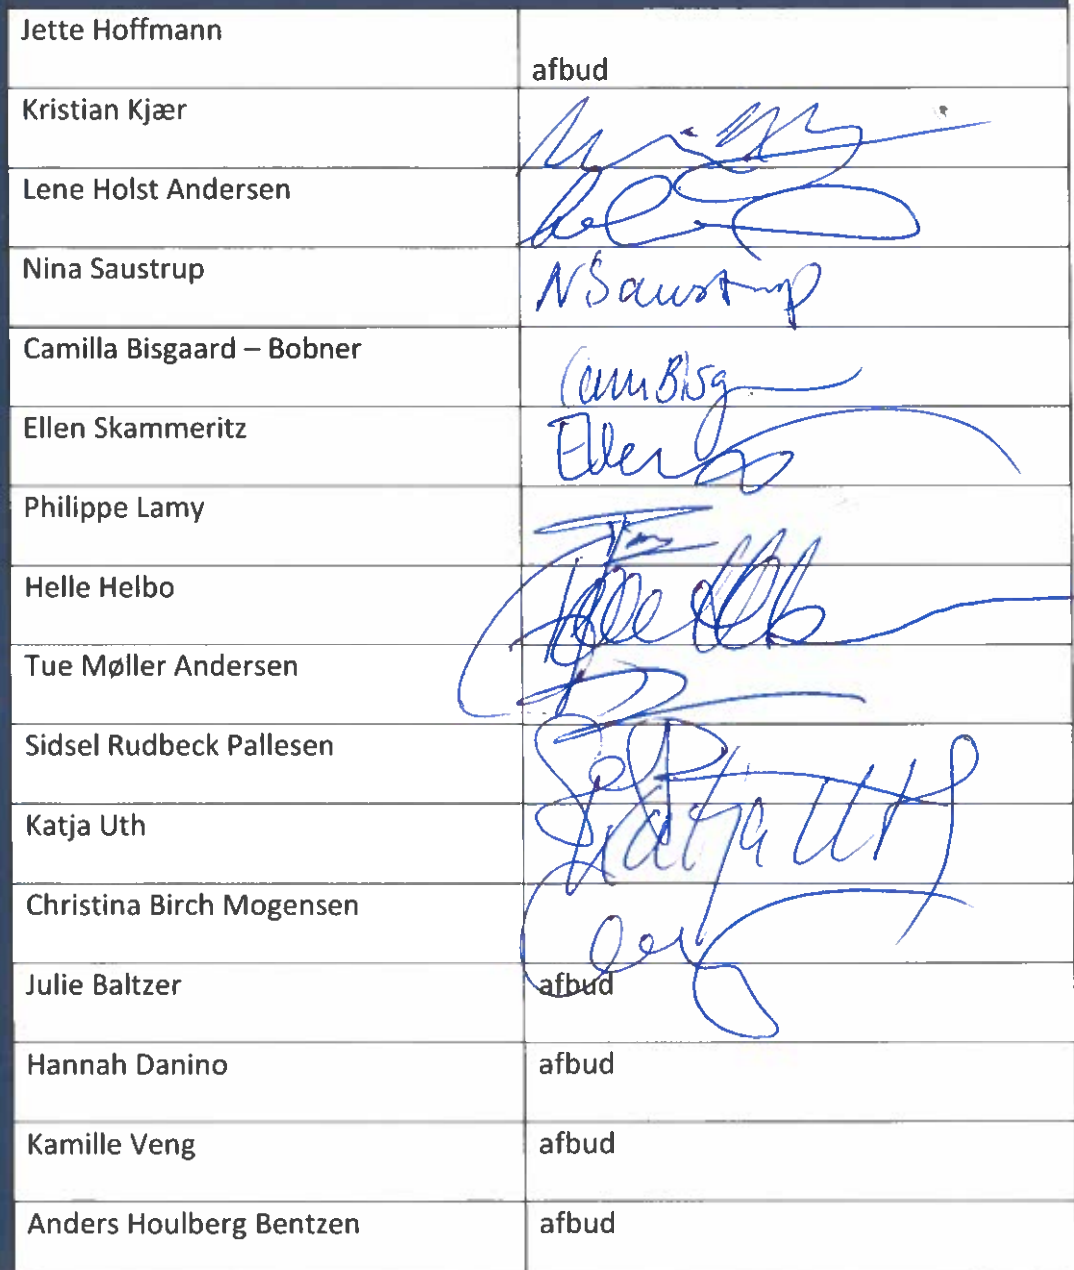 Jette Hoffmann
afbud
Kristian Kjær
Lene Holst Andersen
Nina Saustrup
NSaustrup
Camilla Bisgaard – Bobner
Ellen Skammeritz
Ellen
Philippe Lamy
Helle Helbo
Helle
Tue Møller Andersen
Sidsel Rudbeck Pallesen
Katja Uth
Katja Uth
Christina Birch Mogensen
Julie Baltzer
afbud
Hannah Danino
afbud
Kamille Veng
afbud
Anders Houlberg Bentzen
afbud